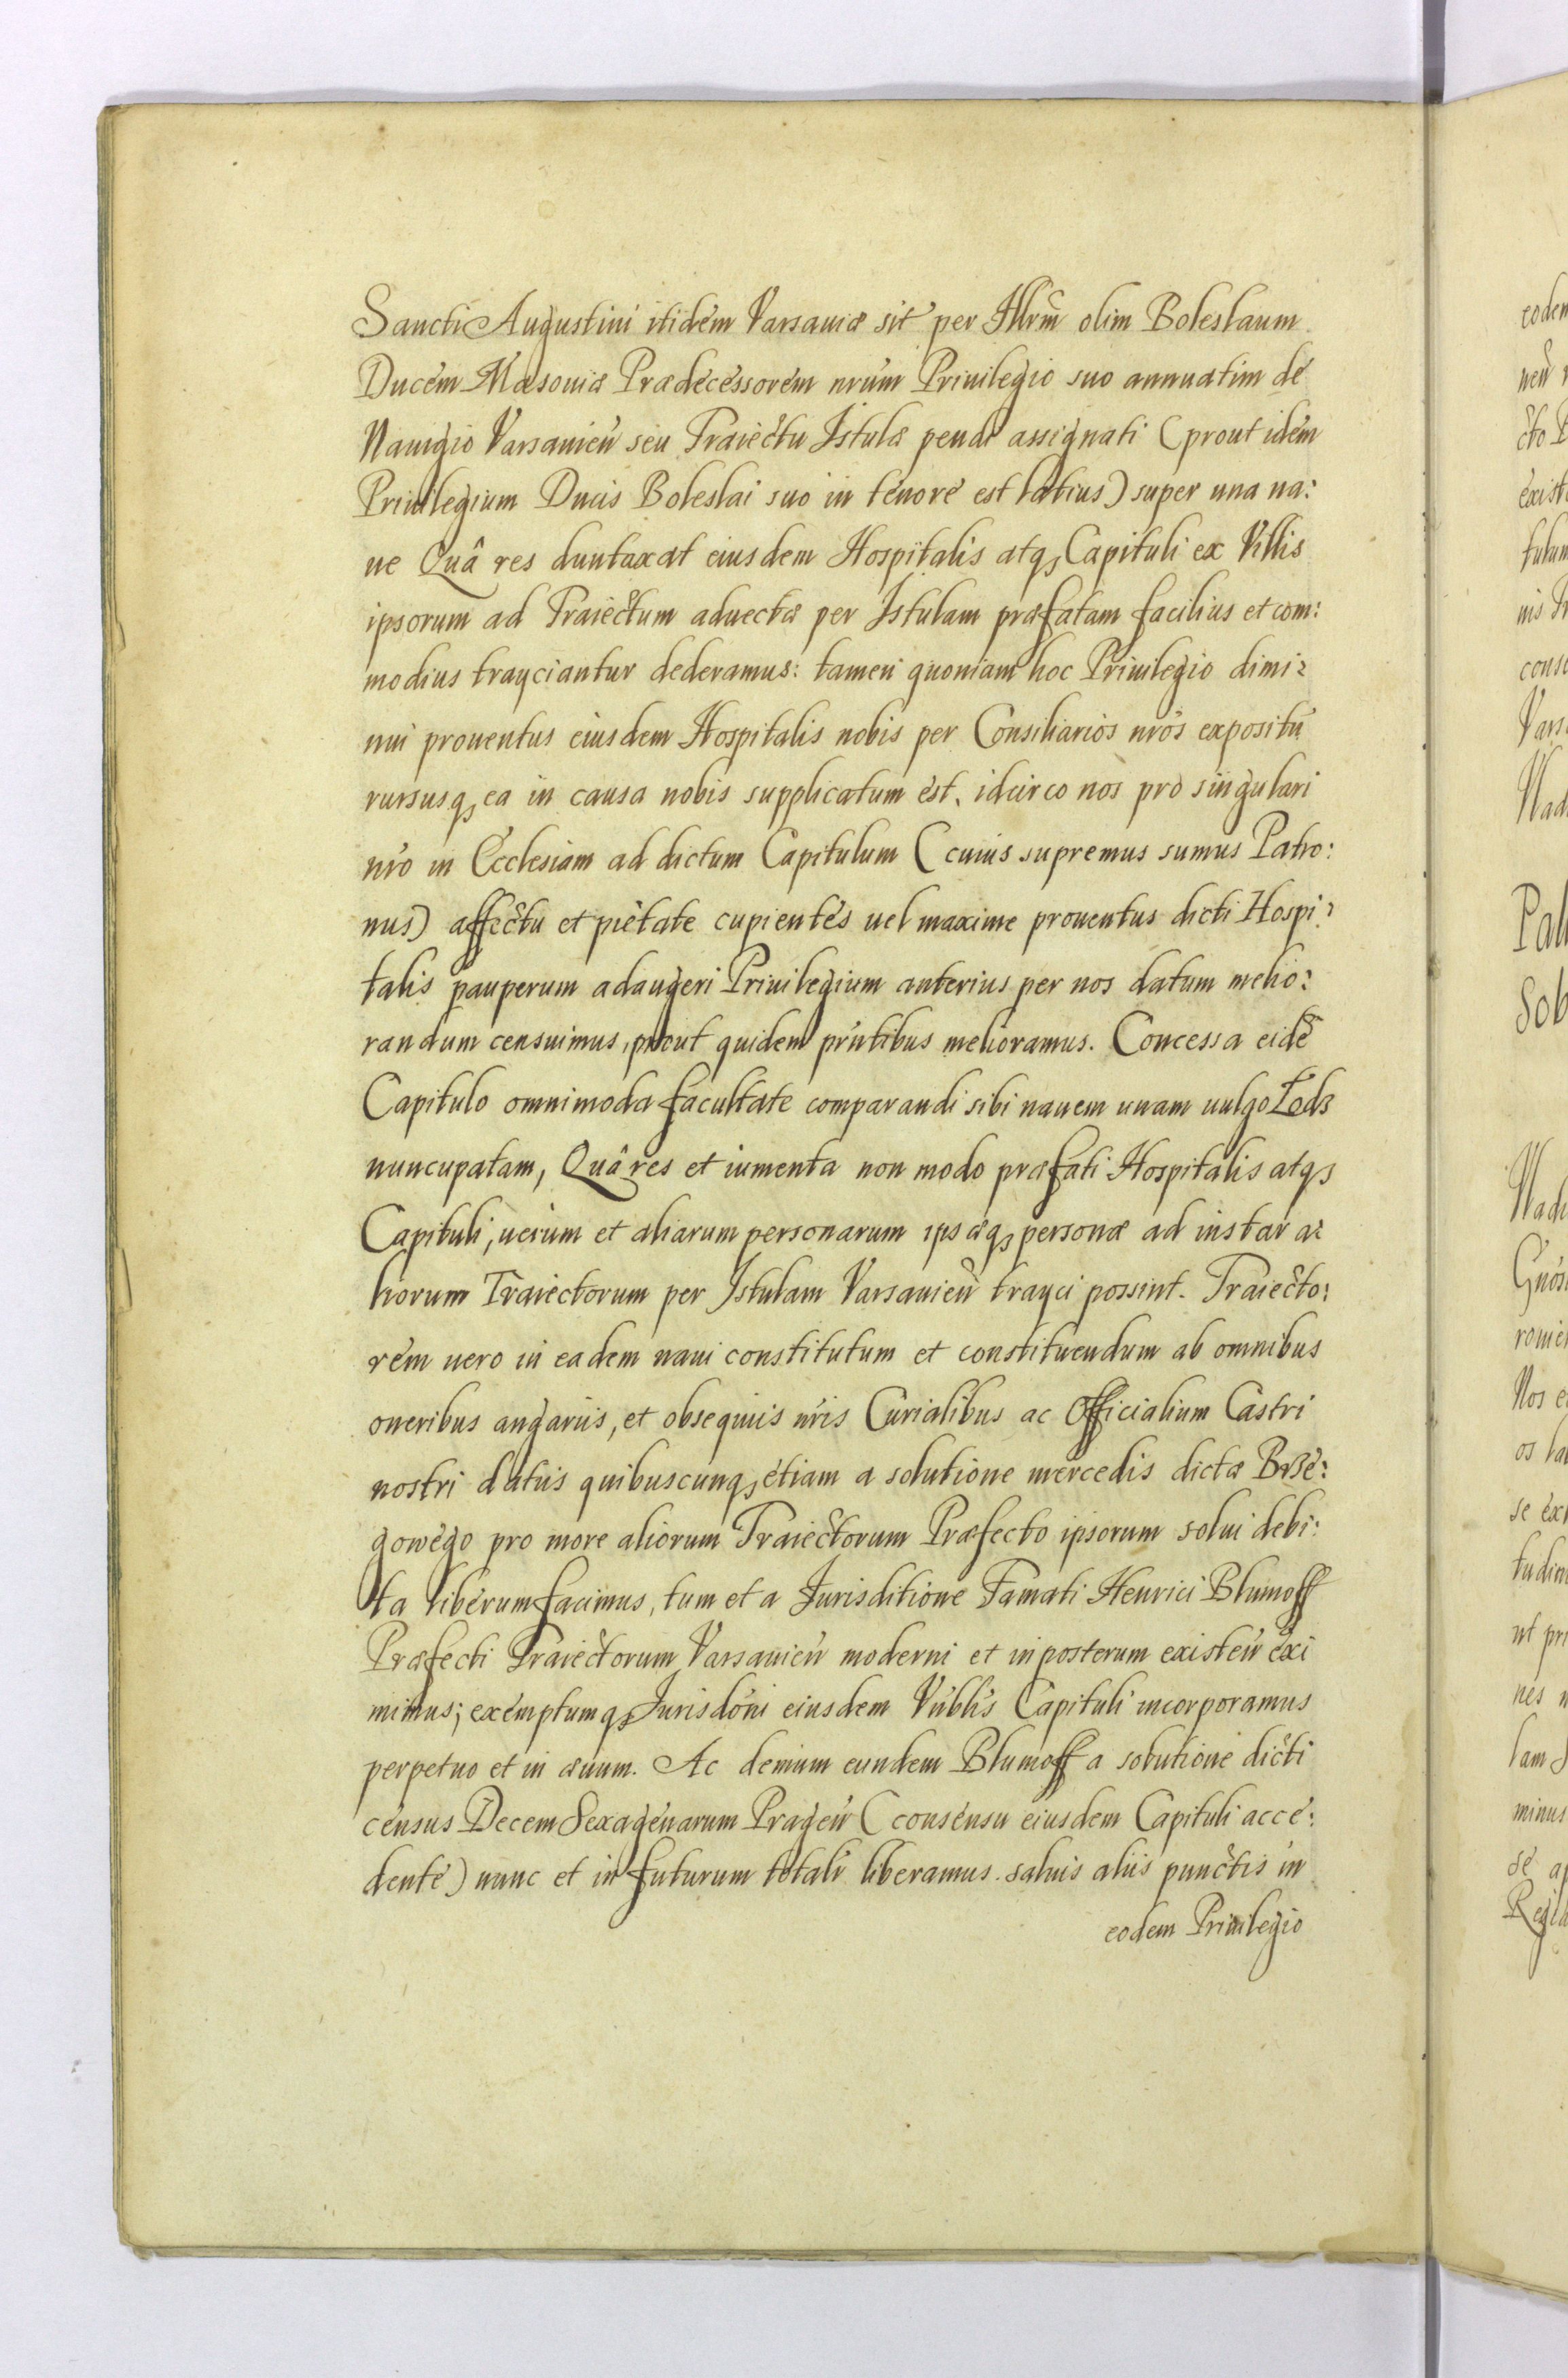 Sancti Augustini itidem Varsauiæ sit per Illrm̃ olim Boleslaum
Ducem Masouiæ Prædecessorem nrũm Priuilegio suo annuatim de
Nauigio Varsauień seu Traiectu Istulæ pendi assignati (prout idem
Priuilegium Ducis Boleslai suo in tenore est latius) super una na:
ue Quâ res duntaxat eiusdem Hospitalis atqꝫ Capituli ex Villis
ipsorum ad Traiectum aduectæ per Istulam præfatam facilius et com:
modius trayciantur dederamus: tamen quoniam hoc Priuilegio dimi:
nui prouentus eiusdem Hospitalis nobis per Consiliarios nrós expositũ
rursusqꝫ ea in causa nobis supplicatum est, idcirco nos pro singulari
nró in Ecclesiam ad dictum Capitulum (cuius supremus sumus Patro:
nus) affectu et pietate cupientes uel maxime prouentus dicti Hospi:
talis pauperum adaugeri Priuilegium anterius per nos datum melio:
randum censuimus, prout quidem prńtibus melioramus. Concessa eidẽ
Capitulo omnimoda facultate comparandi sibi nauem unam uulgo Łodz
nuncupatam, Quâ res et iumenta non modo præfati Hospitalis atqꝫ
Capituli, uerum et aliarum personarum ipsæqꝫ personæ ad instar a:
liorum Traiectorum per Istulam Varsauień trayci possint. Traiecto:
rem uero in eadem naui constitutum et constituendum ab omnibus
oneribus angariis, et obsequiis nrís Curialibus ac Officialium Castri
nostri datiis quibuscunqꝫ etiam a solutione mercedis dictæ Brze:
gowego pro more aliorum Traiectorum Præfecto ipsorum solui debi:
ta liberum facimus, tum et a Jurisditione Famati Henrici Blumoff
Præfecti Traiectorum Varsauień moderni et in posterum existeń exi
mimus; exemptumqꝫ Jurisdóni eiusdem Vńblis Capituli incorporamus
perpetuo et in æuum. Ac demum eundem Blumoff a solutione dicti
census Decem Sexagenarum Prageń (consensu eiusdem Capituli acce:
dente) nunc et in futurum totalr̃ liberamus. saluis aliis punctis in
eodem Priuilegio